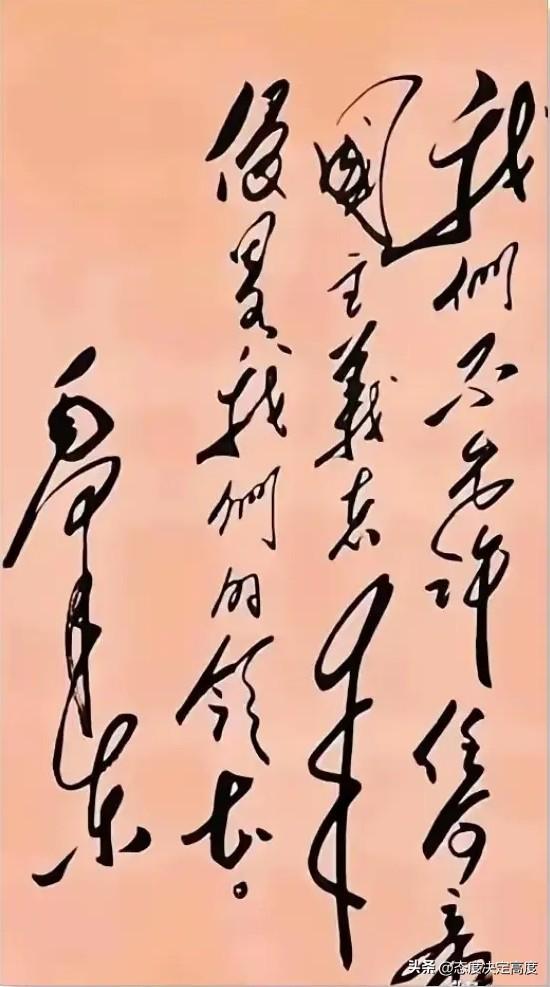 我們不允許任何帝
國主義者再來
侵畧我們的領土。
毛澤東
头条 @态度决定高度